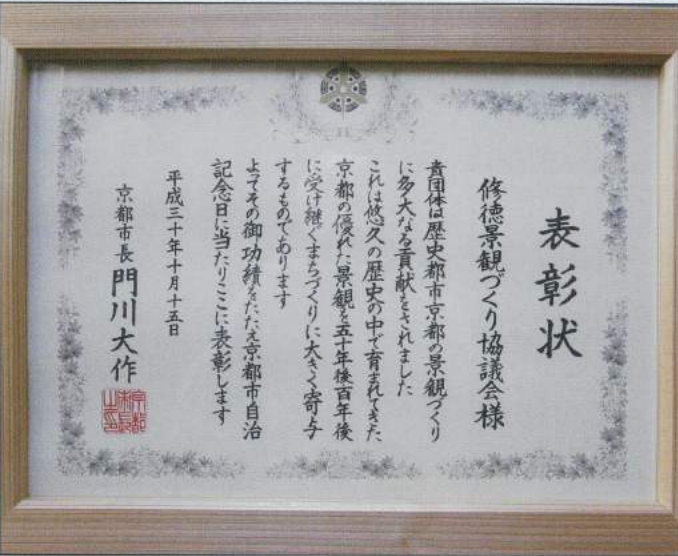 表彰状
修徳景観づくり協議会様
貴団体は歴史都市京都の景観づくり
に多大なる貢献をされました
これは悠久の歴史の中で育まれてきた
京都の優れた景観を五十年後百年後
に受け継ぐまちづくりに大きく寄与
するものであります
よってその御功績をたたえ京都市自治
記念日に当たりここに表彰します
平成三十年十月十五日
京都市長 門川大作